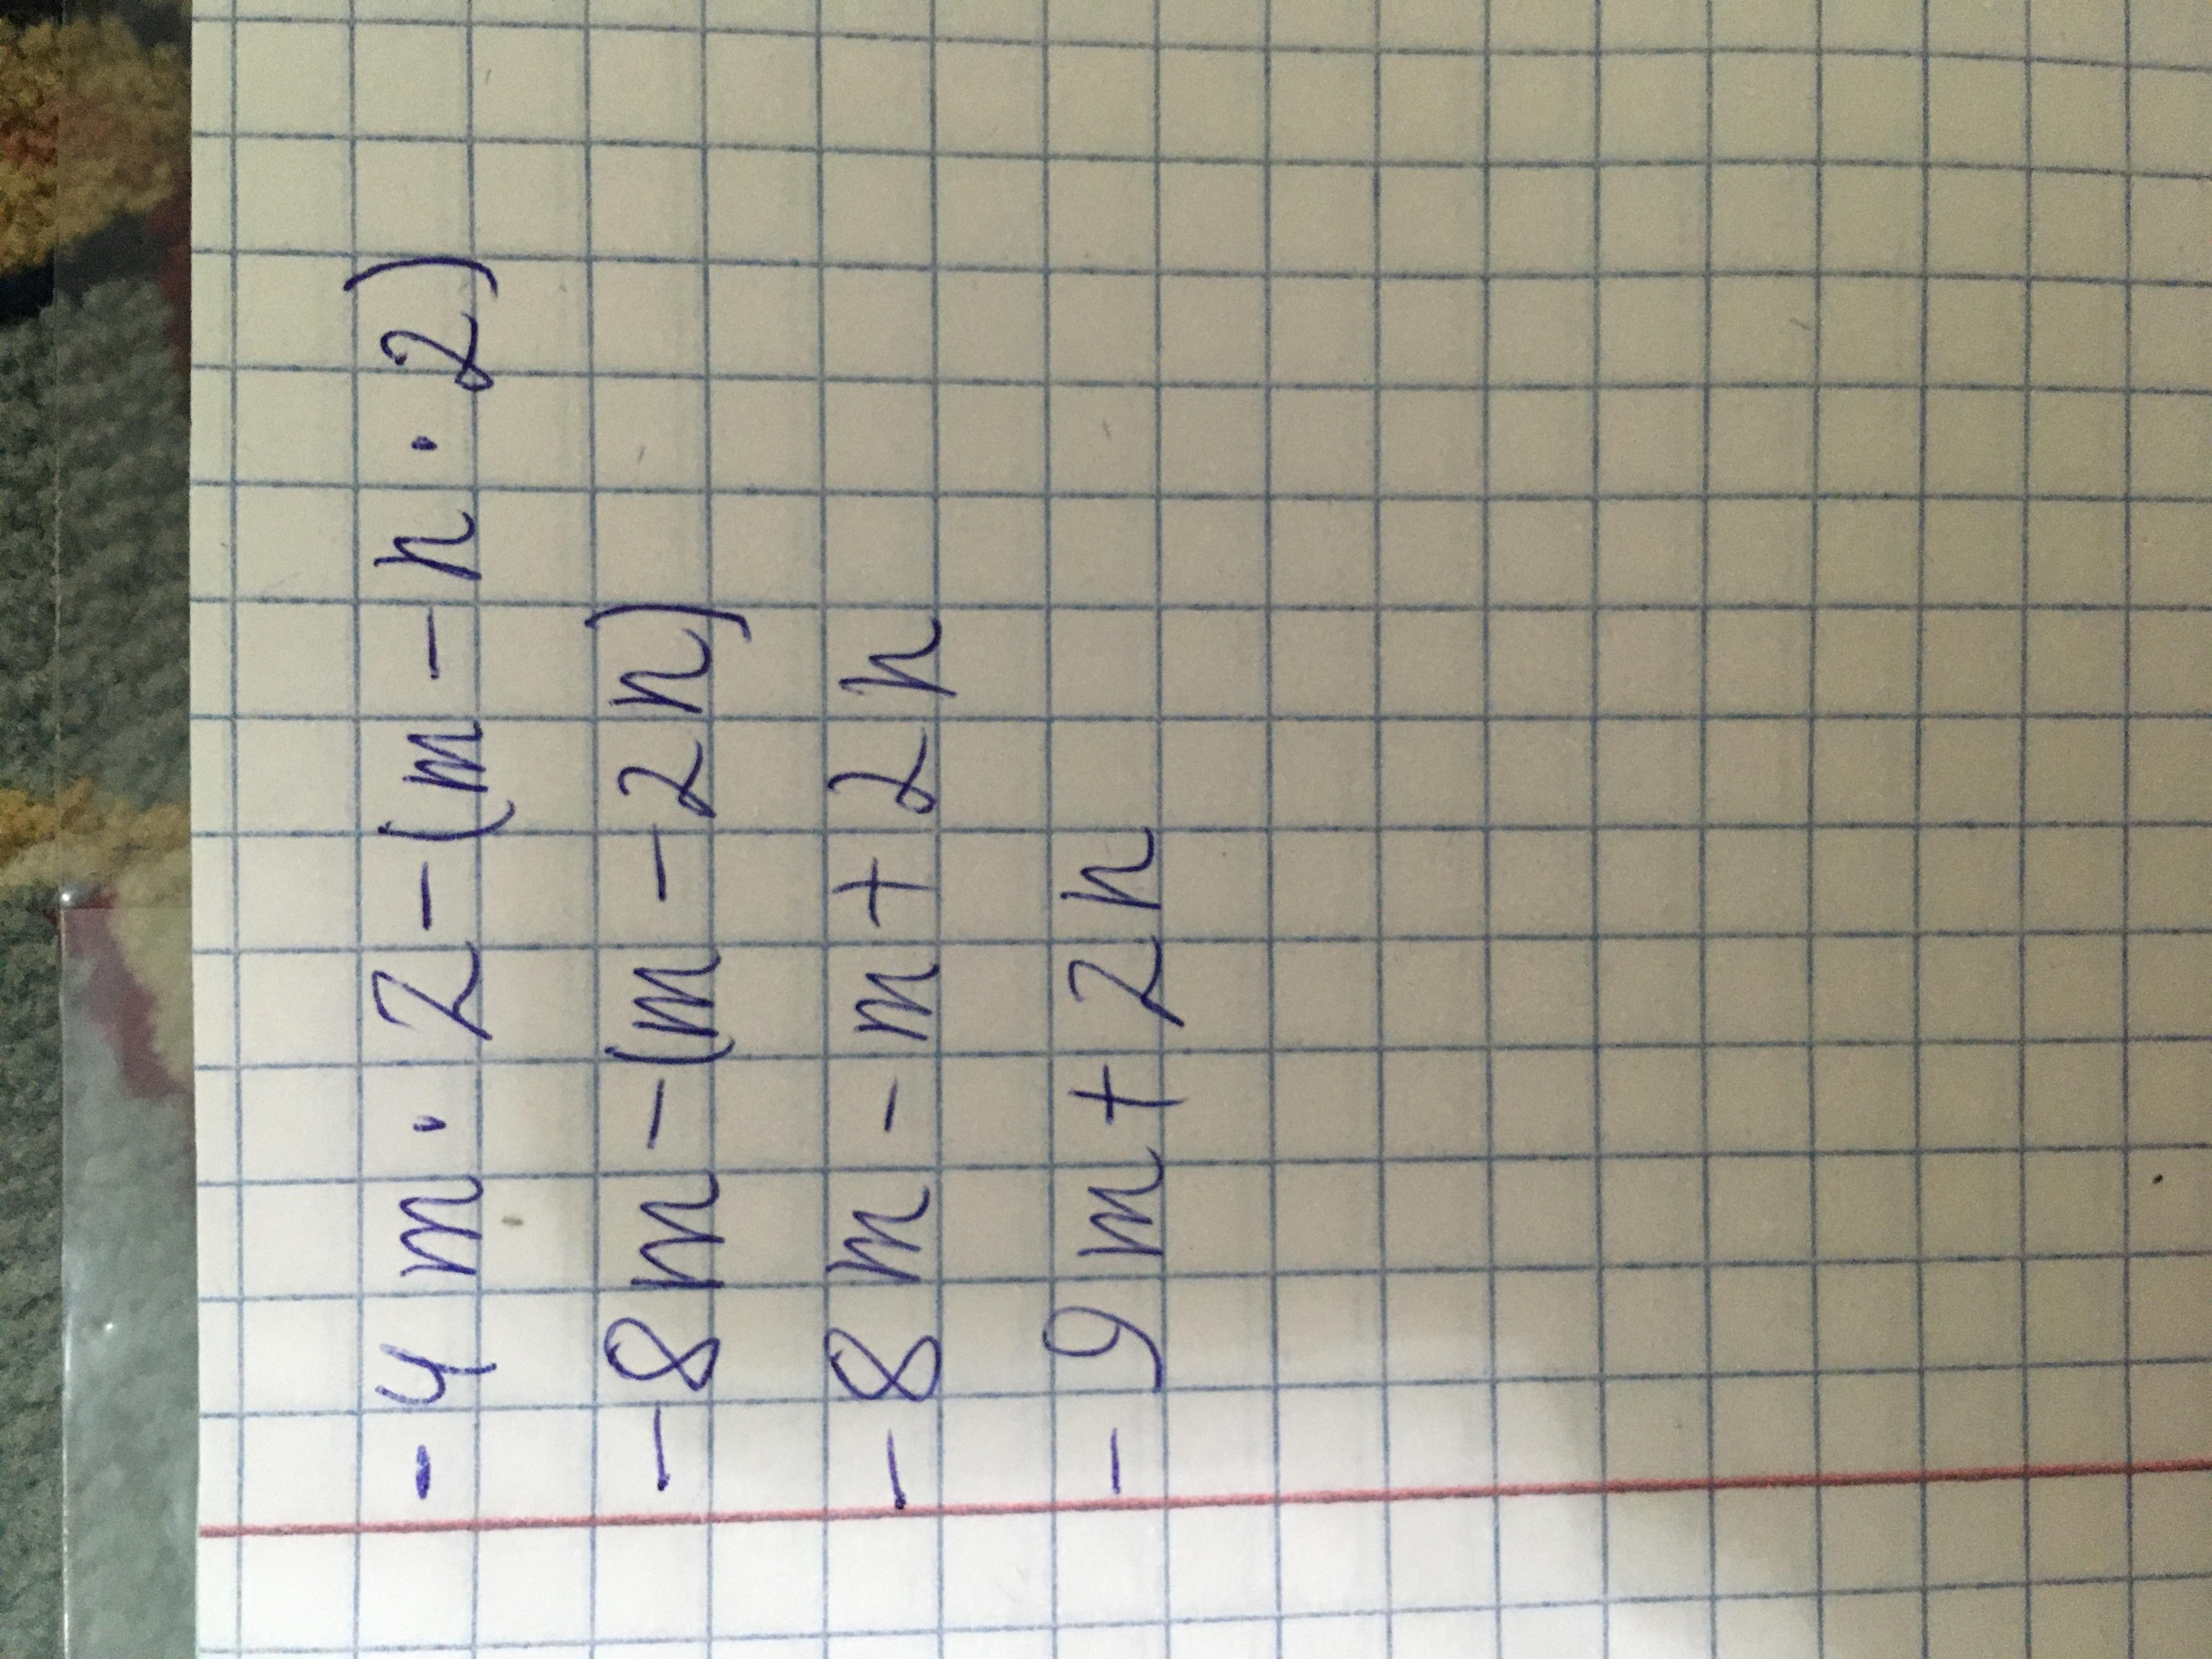 - 4 m · 2 - (m - n · 2)
- 8 m - (m - 2 n)
- 8 m - m + 2 n
- 9 m + 2 n